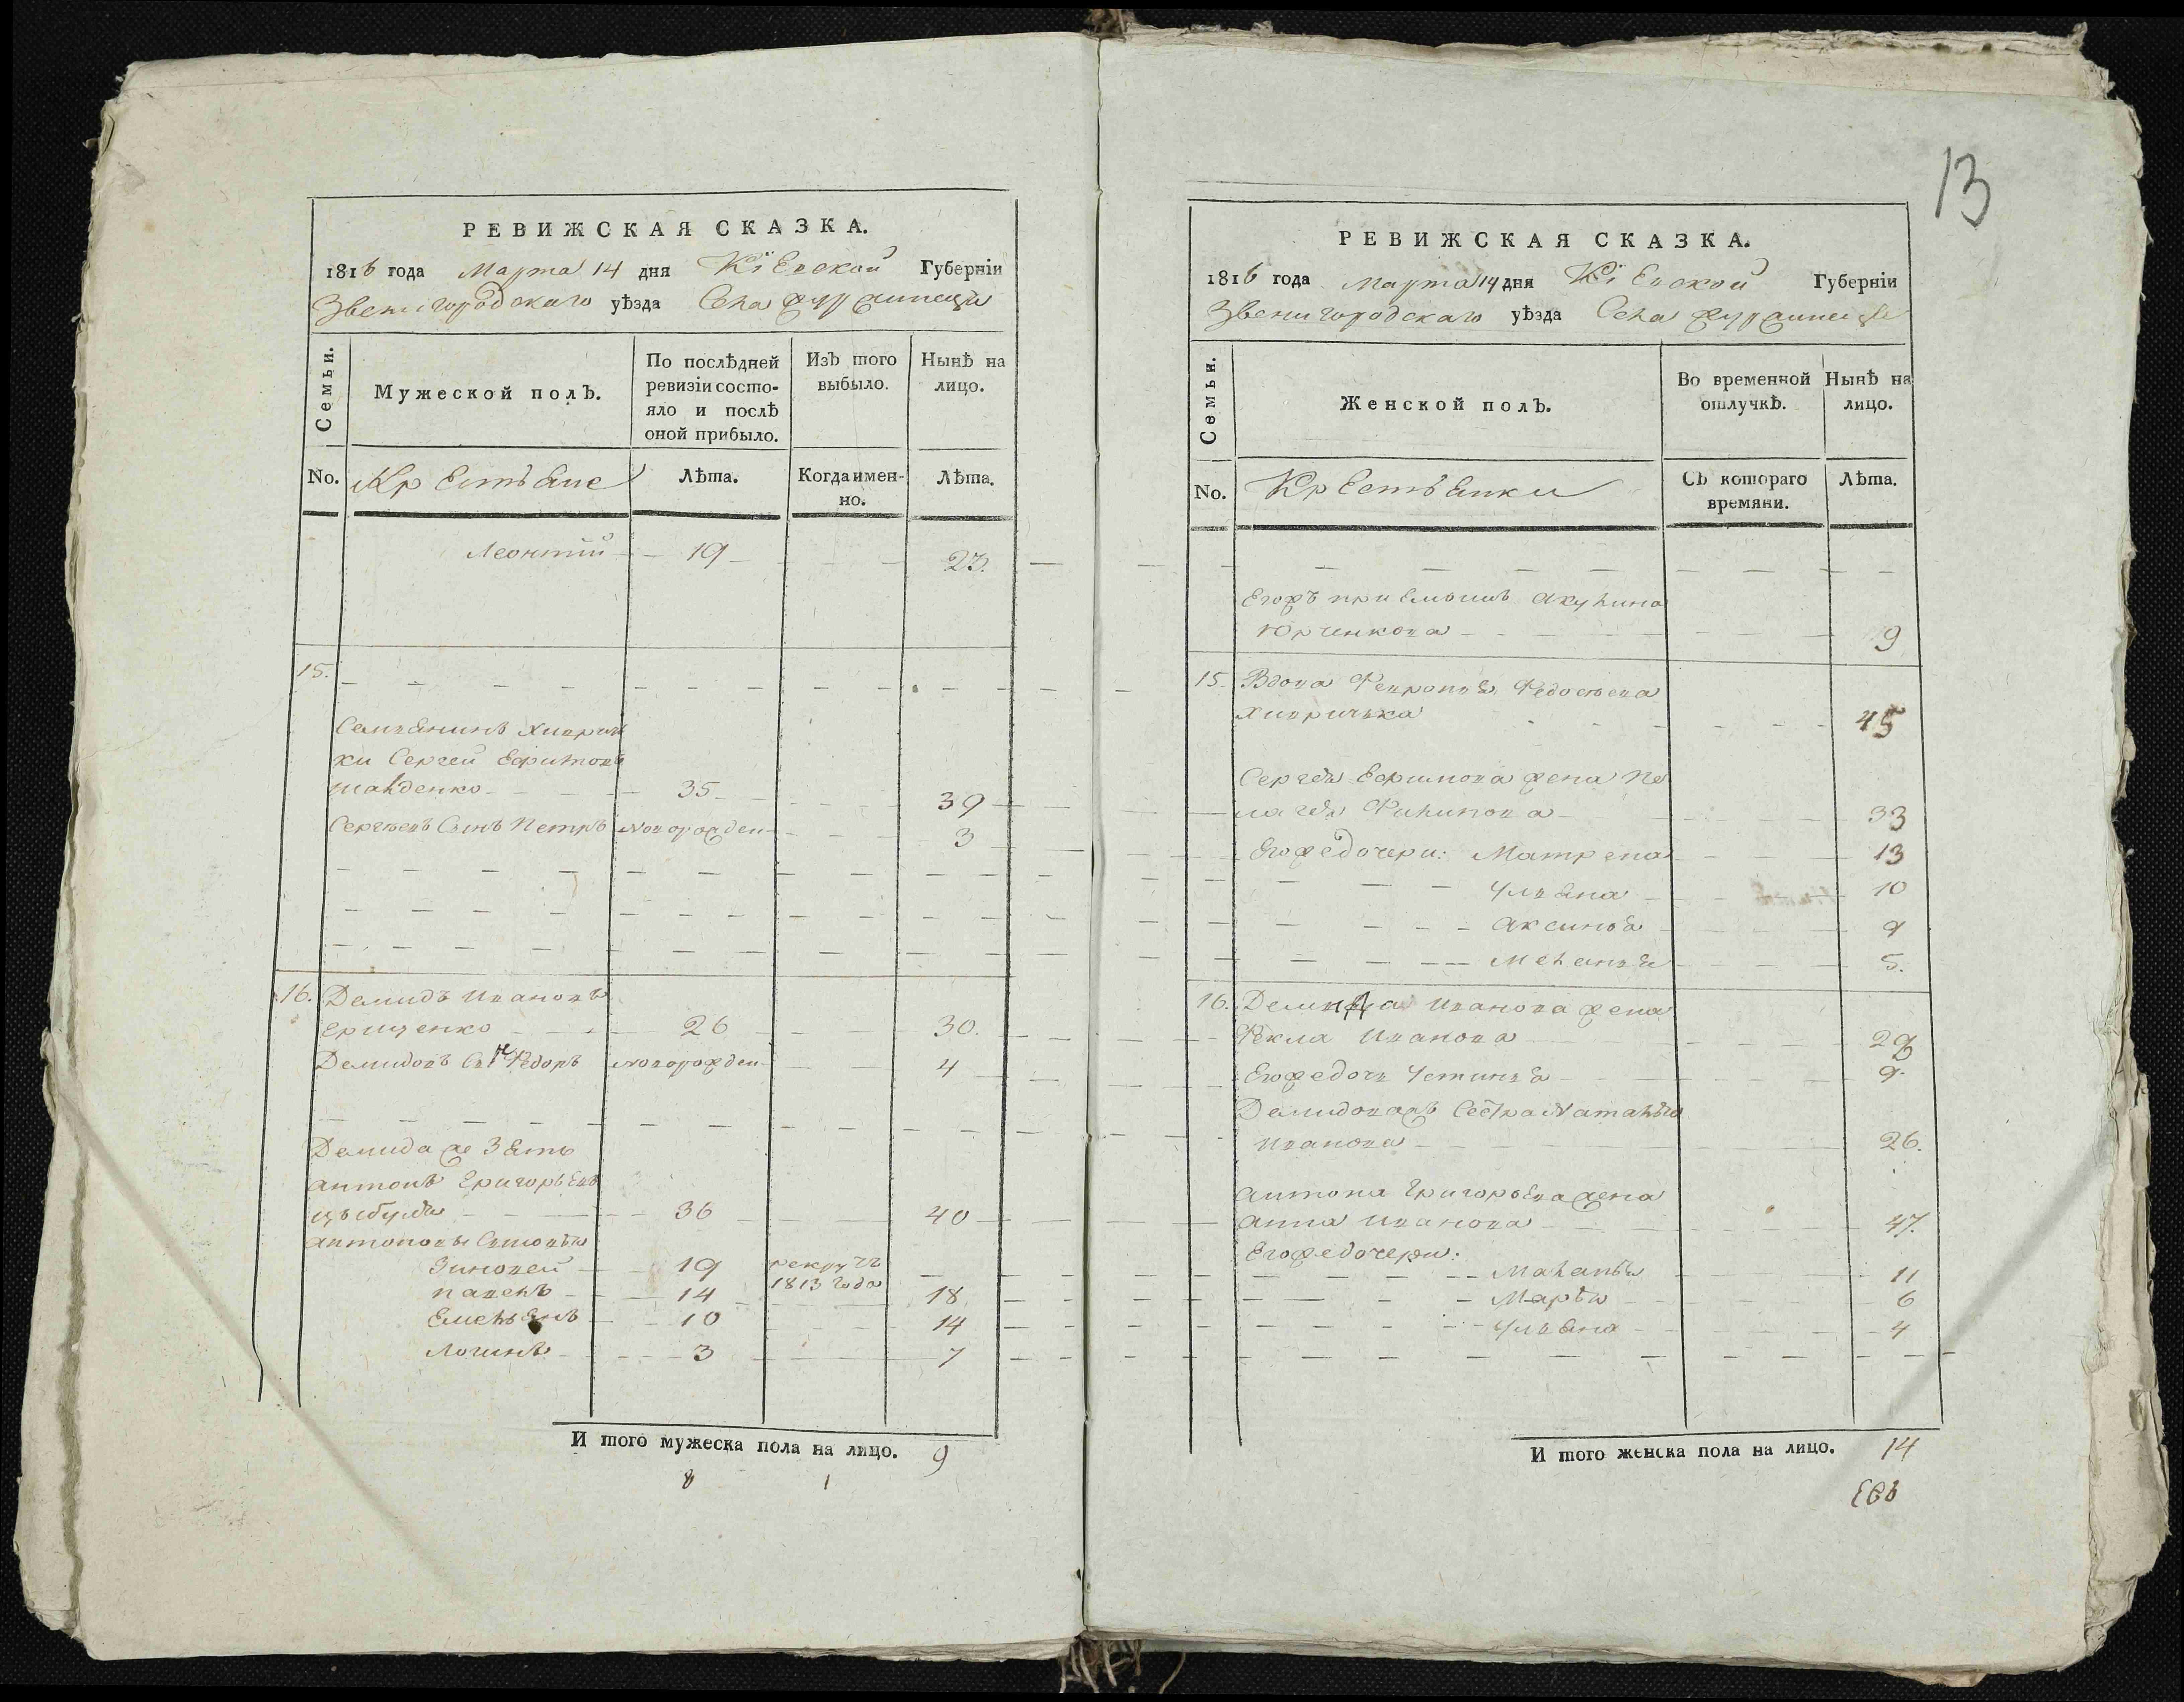 РЕВИЖСКАЯ СКАЗКА.
1816 года Марта 14 дня Кіевской Губерніи
Звенигородскаго уѣзда Села Журжинецъ
Семьи.
Мужеской полъ.
По послѣдней ревизіи состо-
яло и послѣ
оной прибыло.
Изъ того
выбыло.
Нынѣ на
лицо.
No.
Крестьяне
Лѣта.
Когда имен-
но.
Лѣта.
Леонтій 19 23.
15.
Сергей Ефимовъ
35 39
Сергѣевъ Сынъ Петръ новорожден 3
16. Демидъ Ивановъ
Ерищенко 26 30.
Демидовъ Сынъ Федоръ новорожден 4
Демида же Зять
Антонъ Григорьевъ
Цыбуля 36 40
Антоновы Сыновья
Зиновей 19 рекрутъ
1813 года
павелъ 14 18
Емельянъ 10 14
Логинъ 3 7
И того мужеска пола на лицо. 9
8 1
13
РЕВИЖСКАЯ СКАЗКА.
1816 года Марта 14 дня Кіевской Губерніи
Звенигородскаго уѣзда Села Журжинецъ
Семьи.
Женской полъ.
Во временной
отлучкѣ.
Нынѣ на
лицо.
No.
Крестьянки
Съ котораго
времяни.
Лѣта.
Егоръ приемышъ Акулина
Юрчикова 9
15. Вдова Феврония Федосѣева
45
Сергея Ефимова жена Пе
лагея Филипова 33
Егоже дочери: Матрена 13
Ульяна 10
Аксинья 9
Меланья 5.
16. Демида Иванова жена
Фекла Иванова 29
Егоже дочь Устинья 9.
Демидоважъ Сестра Наталья
Иванова 26.
Антона Григорьева жена
Анна Иванова 47.
Егоже дочери:
Маланья 11
Марья 6
Ульяна 4
И того женска пола на лицо. 14